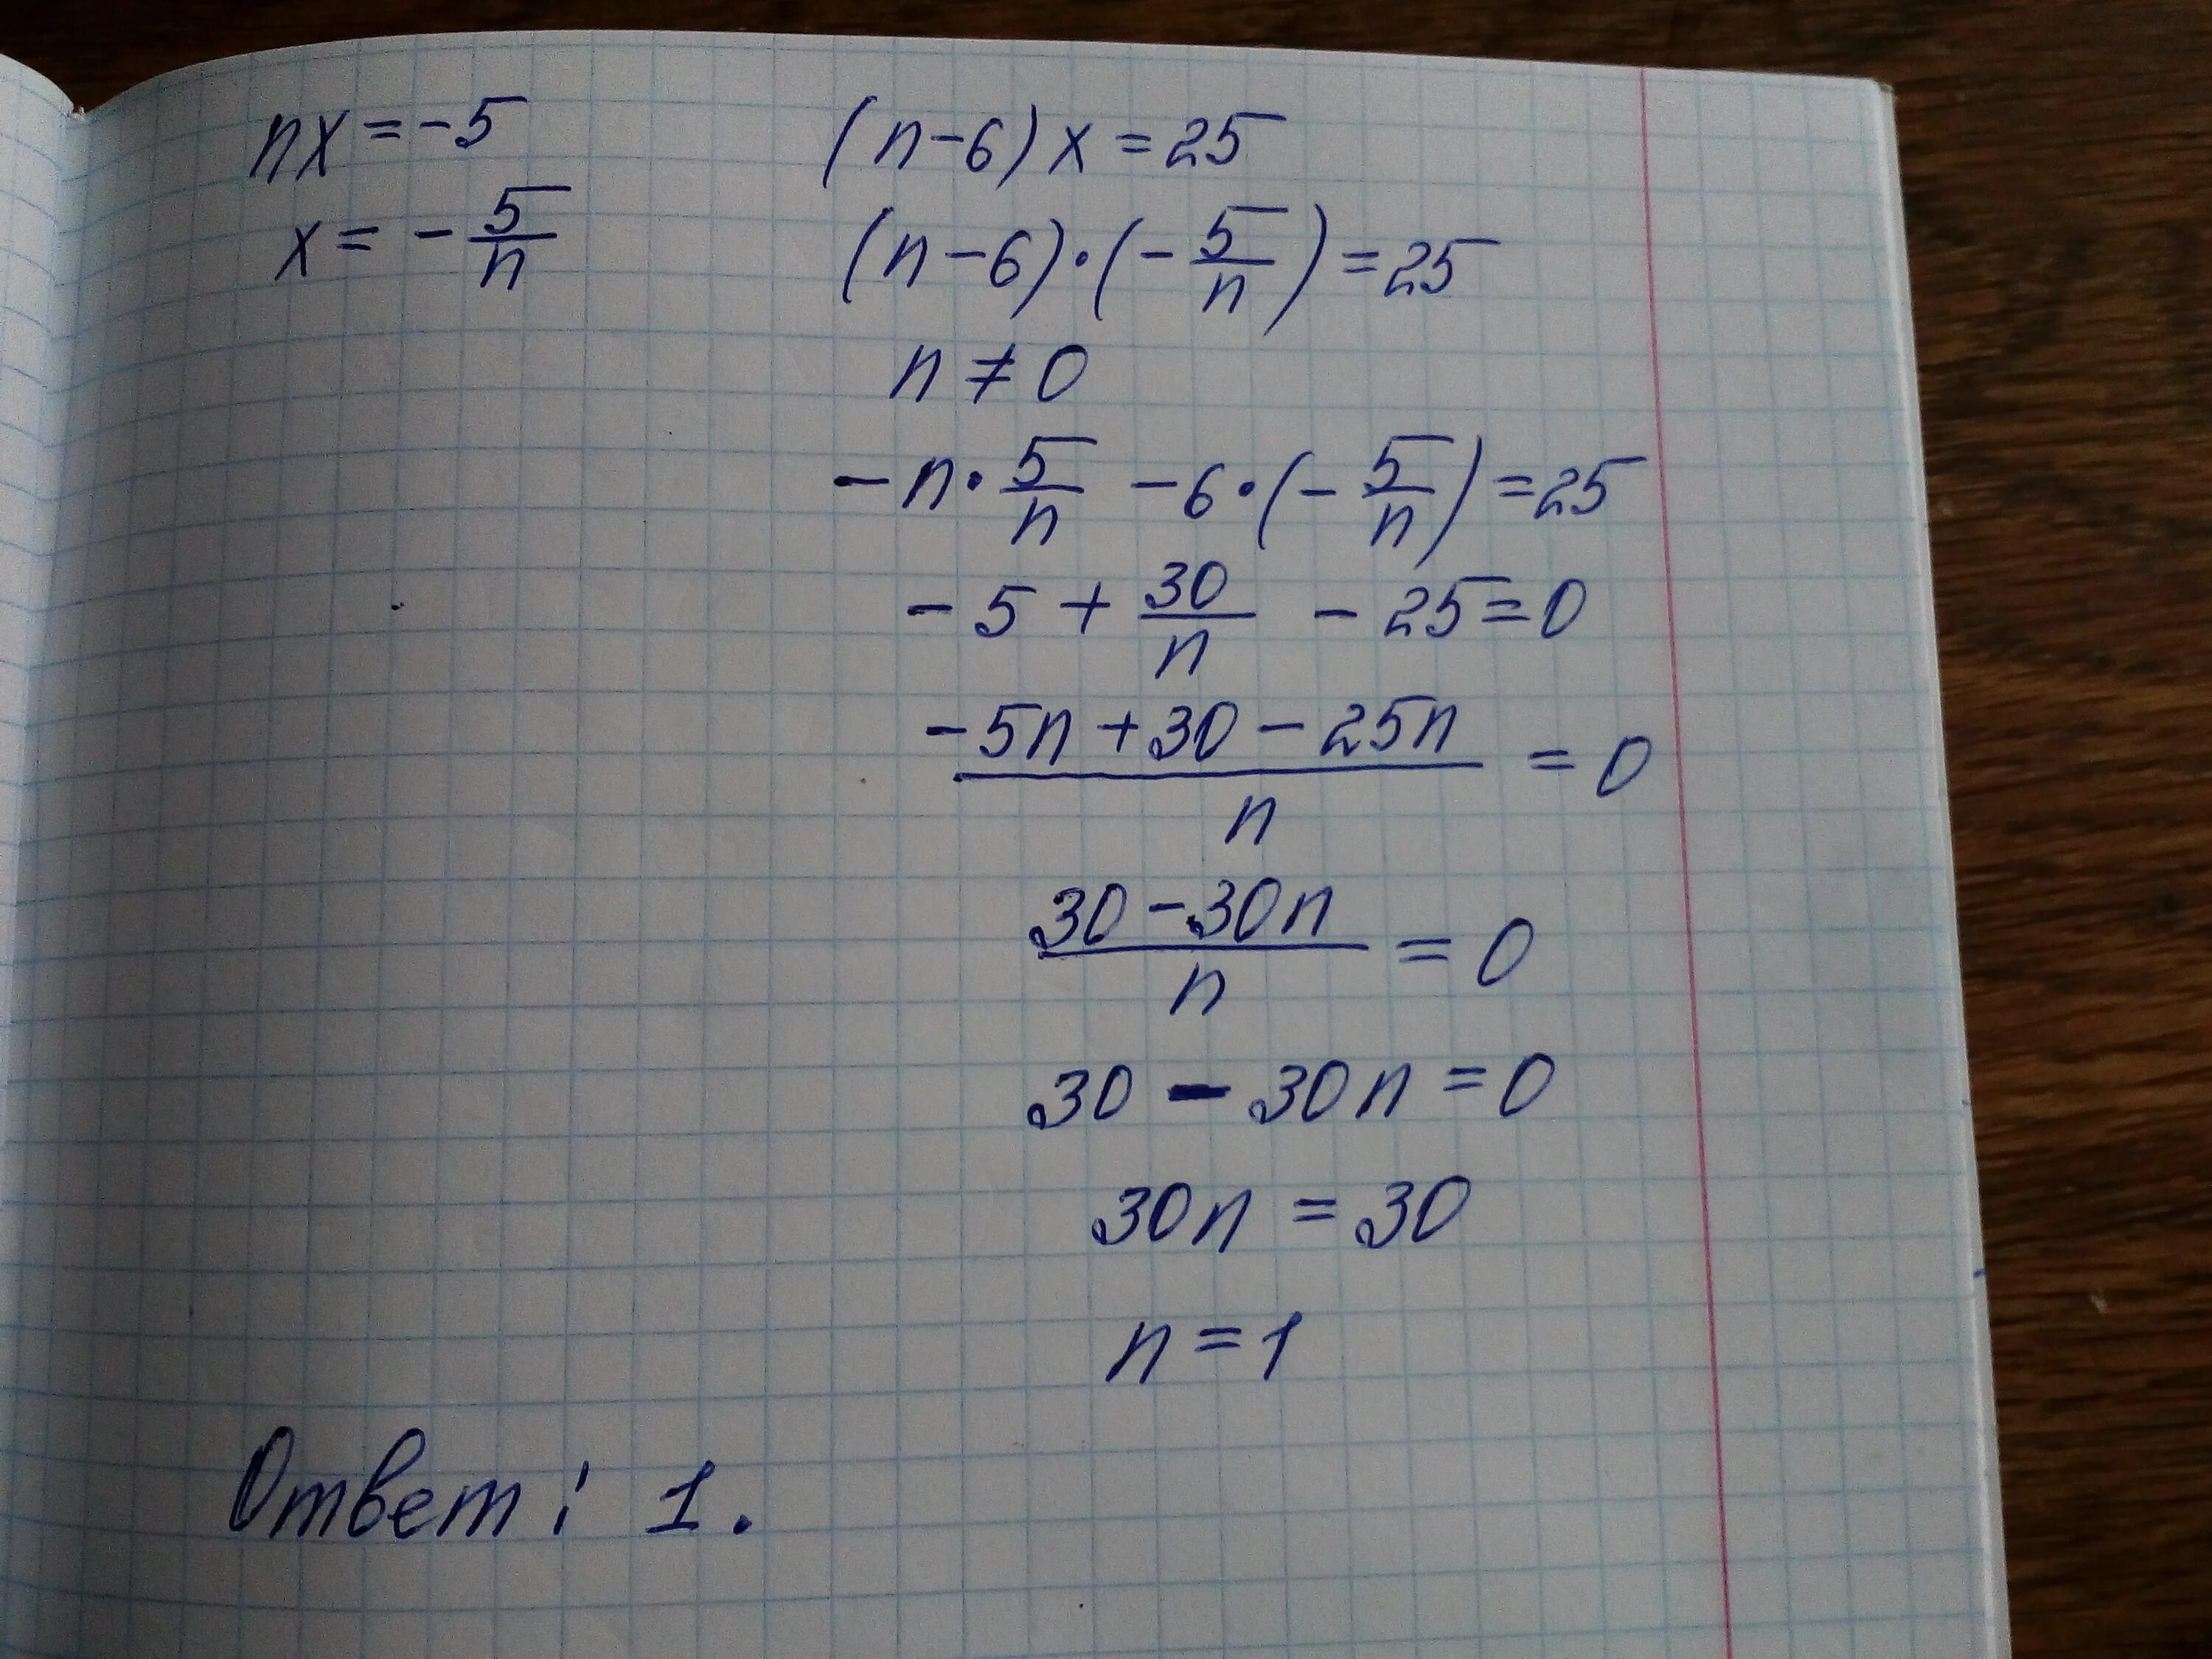 nx = -5
x = - 5/n
(n-6)x = 25
(n-6)·(- 5/n) = 25
n ≠ 0
-n· 5/n - 6·(- 5/n) = 25
- 5 + 30/n - 25 = 0
(-5n + 30 - 25n)/n = 0
(30 - 30n)/n = 0
30 - 30n = 0
30n = 30
n = 1
Ответ: 1.